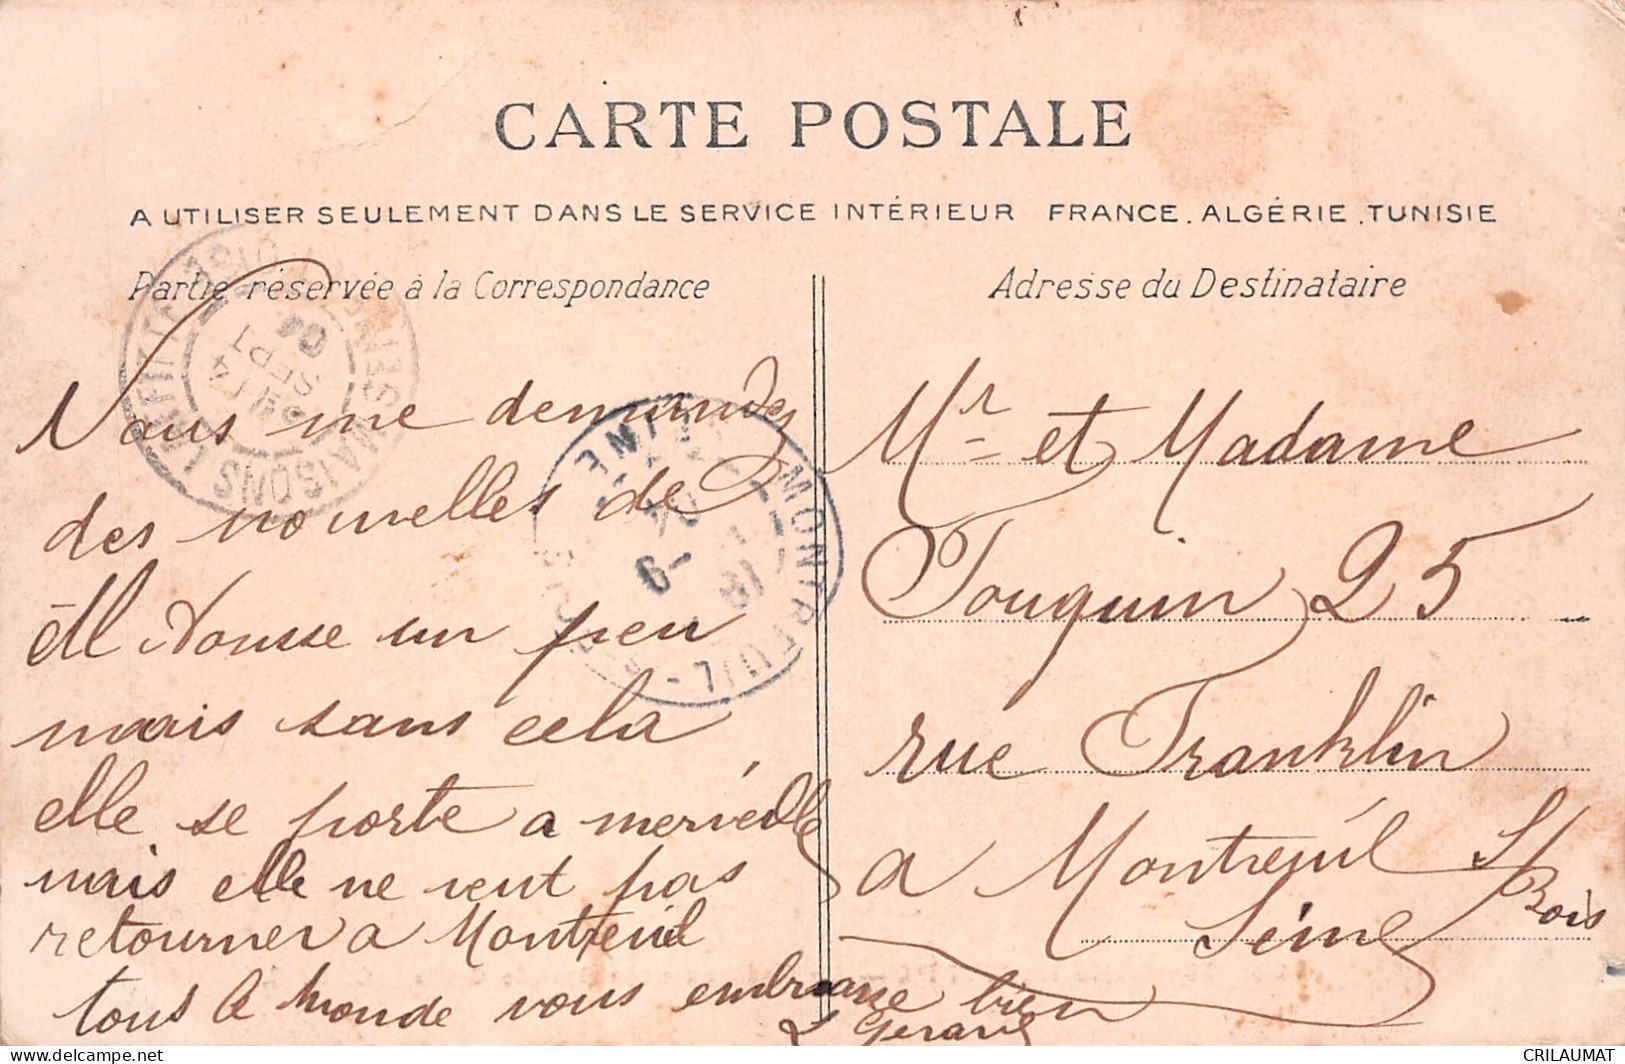 CARTE POSTALE
A UTILISER SEULEMENT DANS LE SERVICE INTÉRIEUR FRANCE. ALGÉRIE. TUNISIE
Partie réservée à la Correspondance
Adresse du Destinataire
MAISONS LAFFITTE
SEPT
Vous me demandez
des nouvelles de
elle se porte a merveille
mais sans cela
un peu
mais elle ne veut pas
retourner a Montreuil
tous le monde vous embrasse bien
MONTREUIL-S-BOIS
SEINE
Mr et Madame
Touquin 25
rue Franklin
a Montreuil S/Bois
Seine
CRILAUMAT